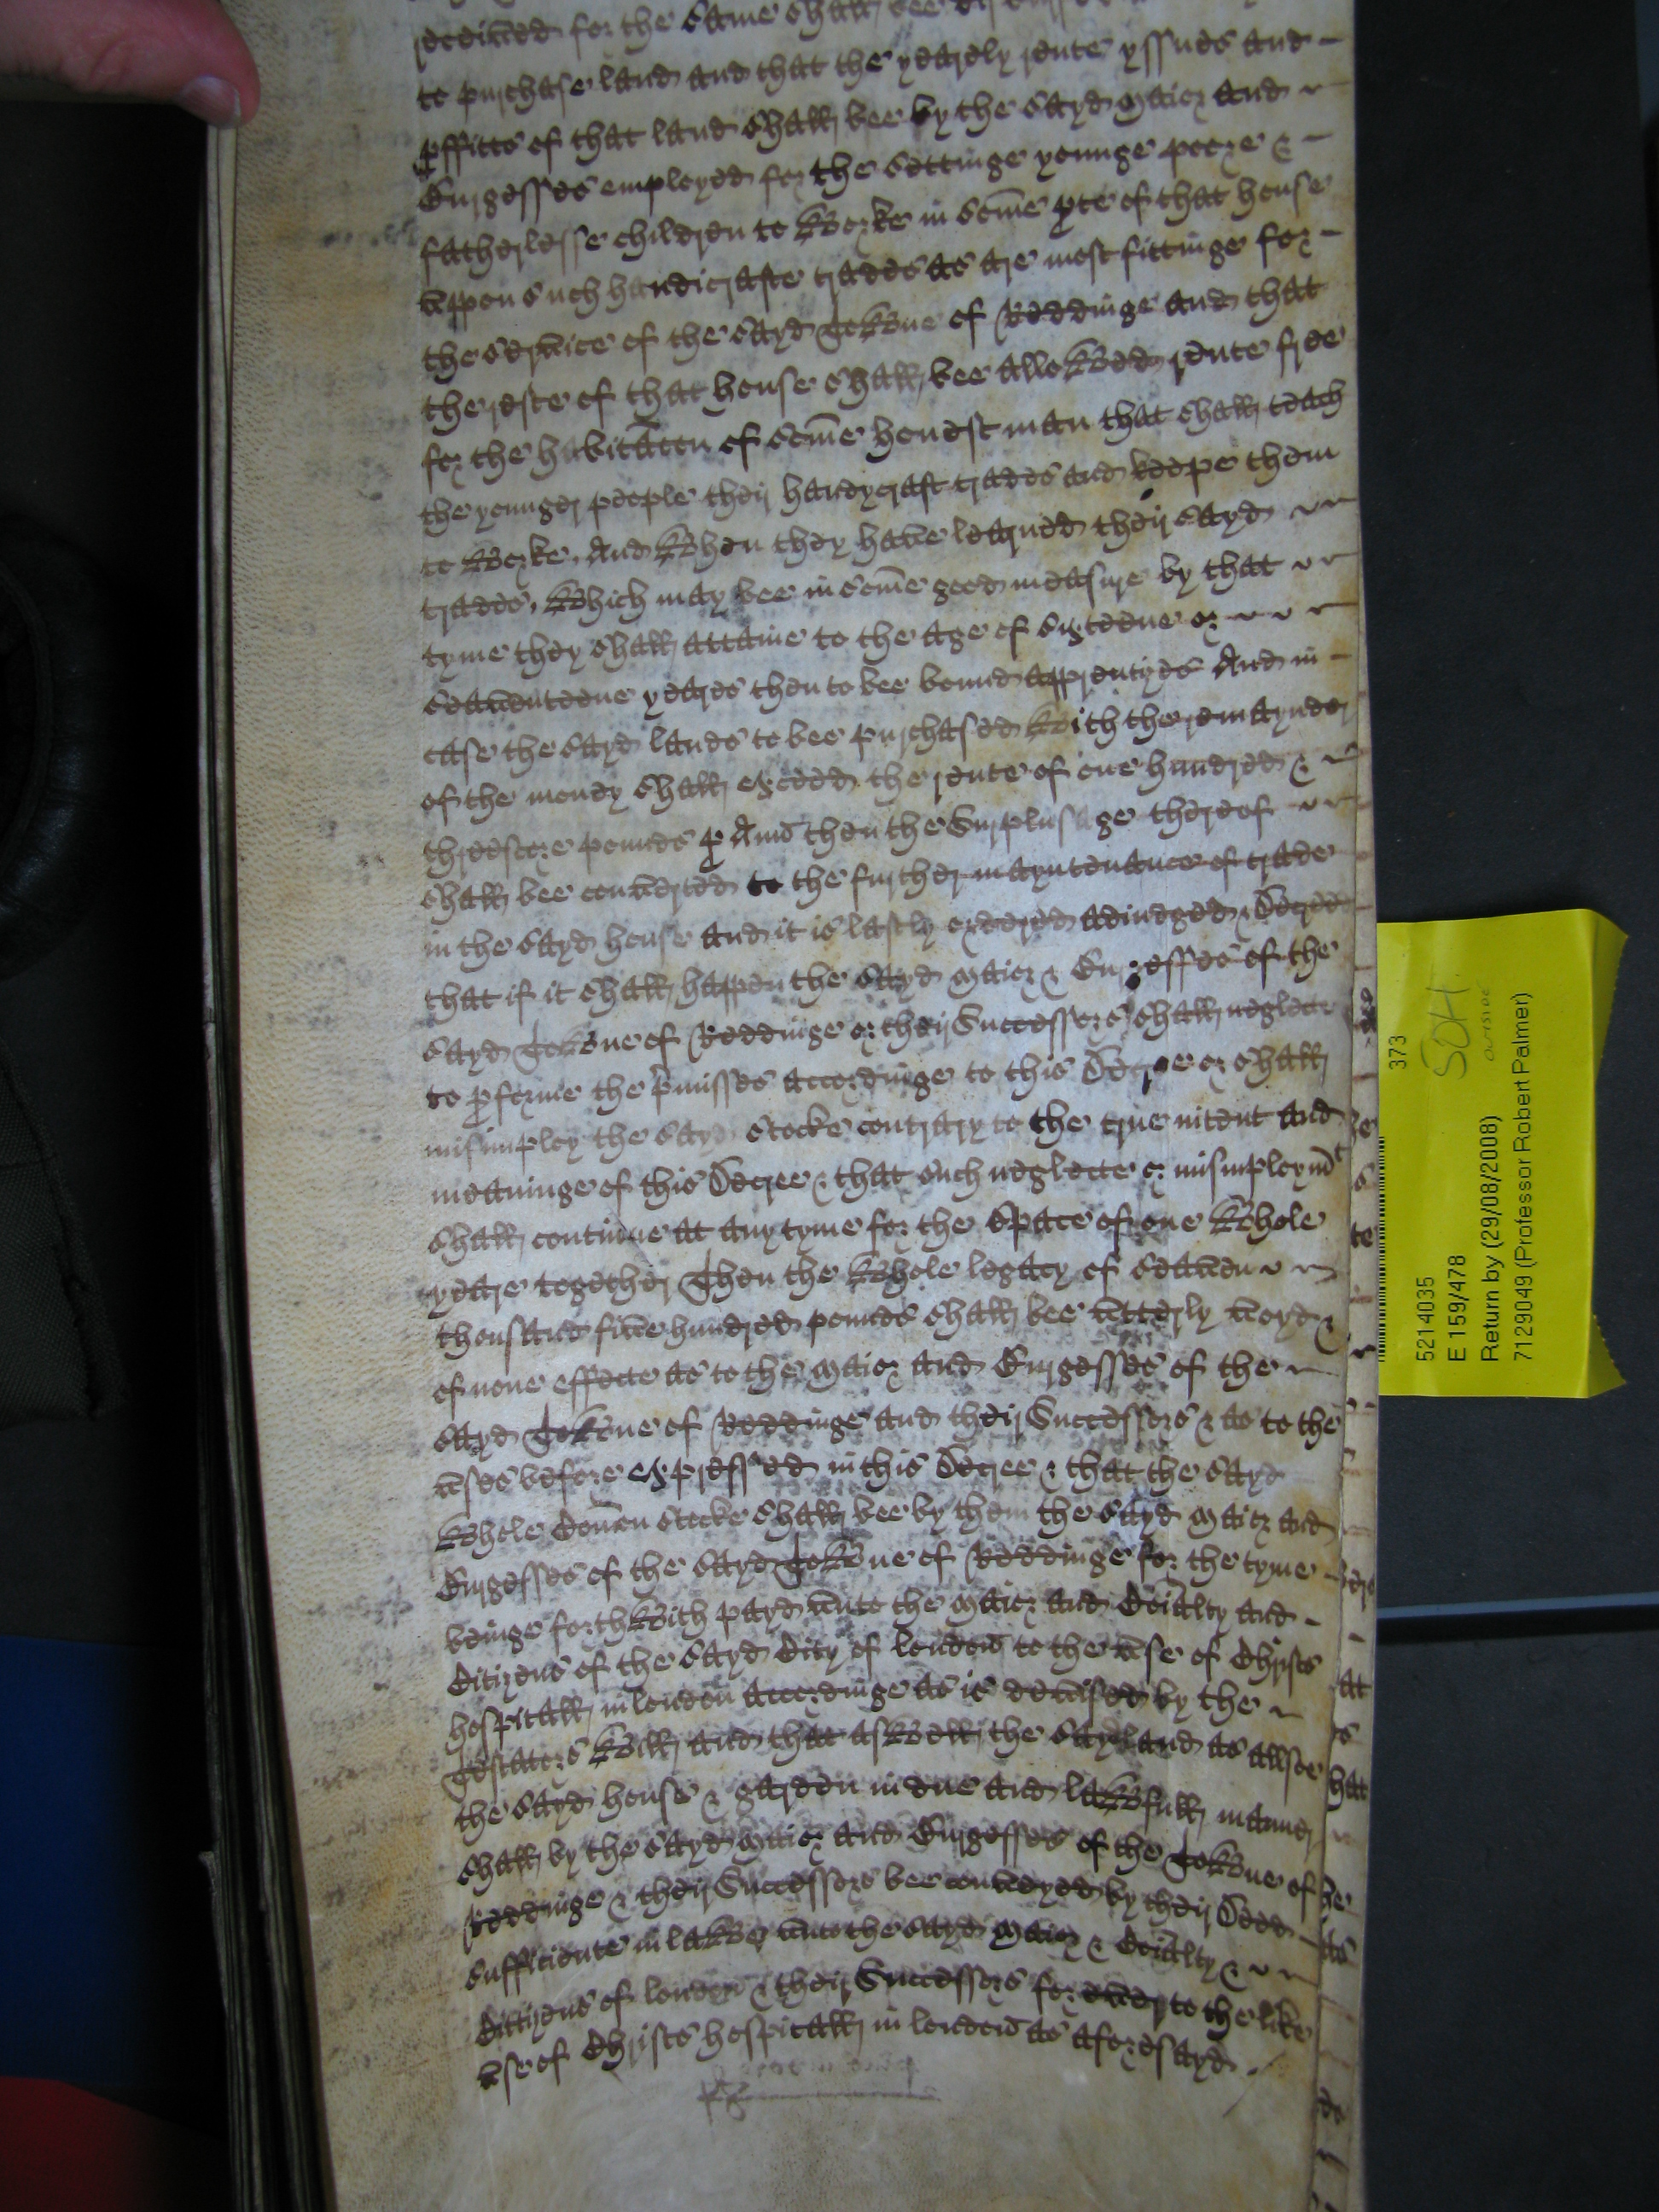 receaved for the same shall bee
to purchase land and that the yearely rente yssues and
pffitts of that land shall bee by the sayd Maior and
Burgesses employed for the settinge younge poore &
fatherlesse children to worke in some pte of that house
uppon such handicrafte trades as are most fittinge for
the service of the sayd Towne of Reddinge and that
the reste of that house shall bee allowed rente free
for the habitacon of some honest man that shall teach
the younger people their handycraft trades and keepe them
to worke. And when they have learned their sayd
trades, which may bee in some good measure by that
tyme they shall attaine to the age of sixteene or
seaventeene yeares then to bee bound apprentyces And in
case the sayd lands to bee purchased with the remaynder
of the money shall exceed the rente of one hundred &
threescore pounds p Annu then the Surplusage thereof
shall bee converted to the further mayntenance of trade
in the sayd house and it is lastly ordered adiudged & Decreed
that if it shall happen the sayd Maior & Burgesses of the
sayd Towne of Reddinge or their Successors shall neglecte
to pforme the pmisses accordinge to this Decree or shall
misimploy the sayd stocke contrary to the true intent and
meaninge of this Decree & that such neglecte or misimploymt
shall continue at any tyme for the space of one whole
yeare together Then the whole legacy of seaven
thousand five hundred pounds shall bee utterly voyd &
of none effecte as to the Maior and Burgesses of the
sayd Towne of Reddinge and their Successors & as to the
uses before expressed in this Decree & that the sayd
whole Comon stocke shall bee by them the sayd Maior and
Burgesses of the sayd Towne of Reddinge for the tyme
beinge forthwith payd unto the Maior and Coialty and
Citizens of the sayd Citty of London to the use of Christs
hospitall in london accordinge as is devised by the
Testators will and that aswell the sayd land as allsoe
the sayd house & garden in due and lawfull mannr
shall by the sayd Maior and Burgesses of the Towne of
Reddinge & their Successors bee conveyed by their Deed
sufficiente in lawe unto the sayd Maior & Coialty &
Cittizens of london & their Successors for ever to the like
use of Christs hospitall in london as aforesayd
373
SOH
outsize
5214035
E 159/478
Return by (29/08/2008)
7129049 (Professor Robert Palmer)